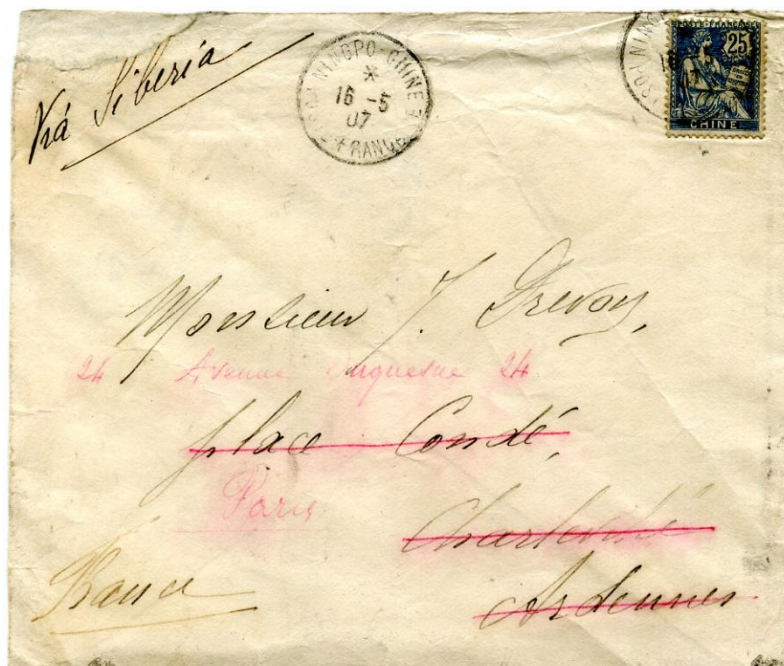 Viá Siberia
NINGPO-CHINE
*
16 -5
07
FRANCE
NINGPO
POSTE FRANÇAISE
25
CHINE
Monsieur J. Drevon,
24 Avenue Duquesne 24
place Condé,
Paris
Charleville
France
Ardennes